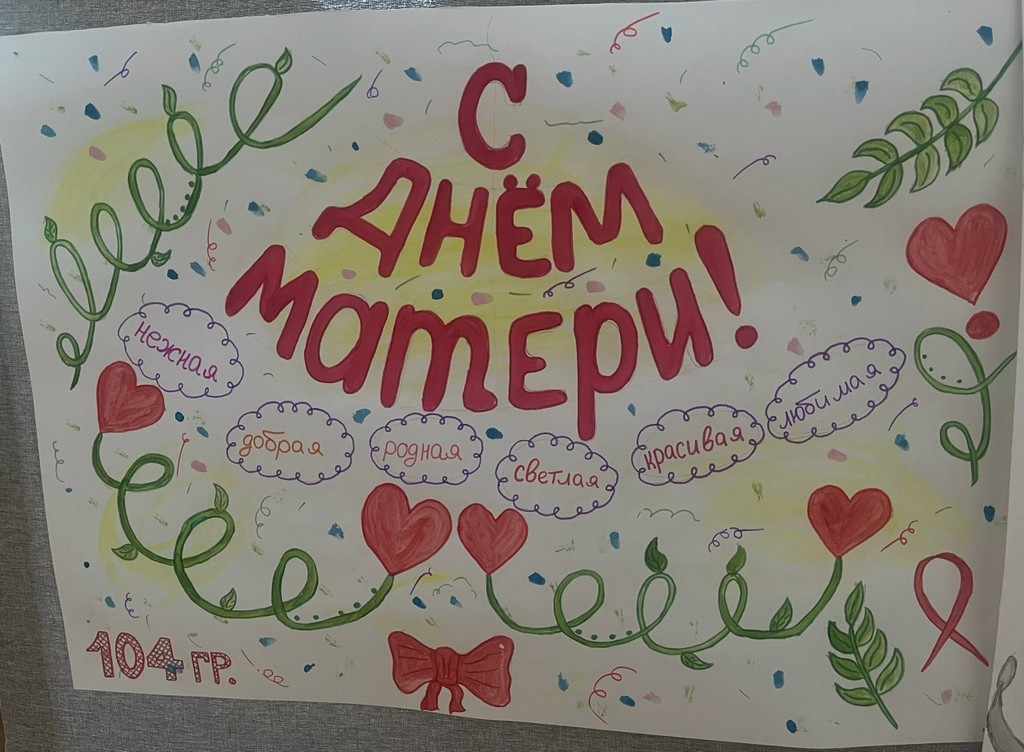 С
ДНЁМ
МАТЕРИ!
нежная
добрая
родная
светлая
красивая
любимая
104 гр.